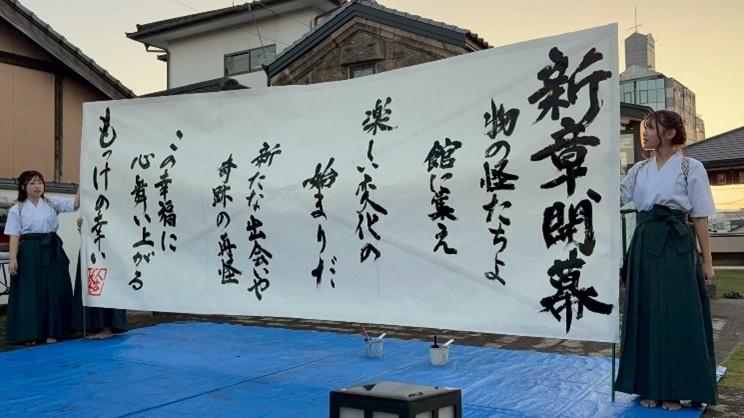 新章、開幕
物の怪たちよ
館に集え
楽しい変化の
始まりだ
新たな出会いや
奇跡の再怪
この幸福に
心舞い上がる
もっけの幸い